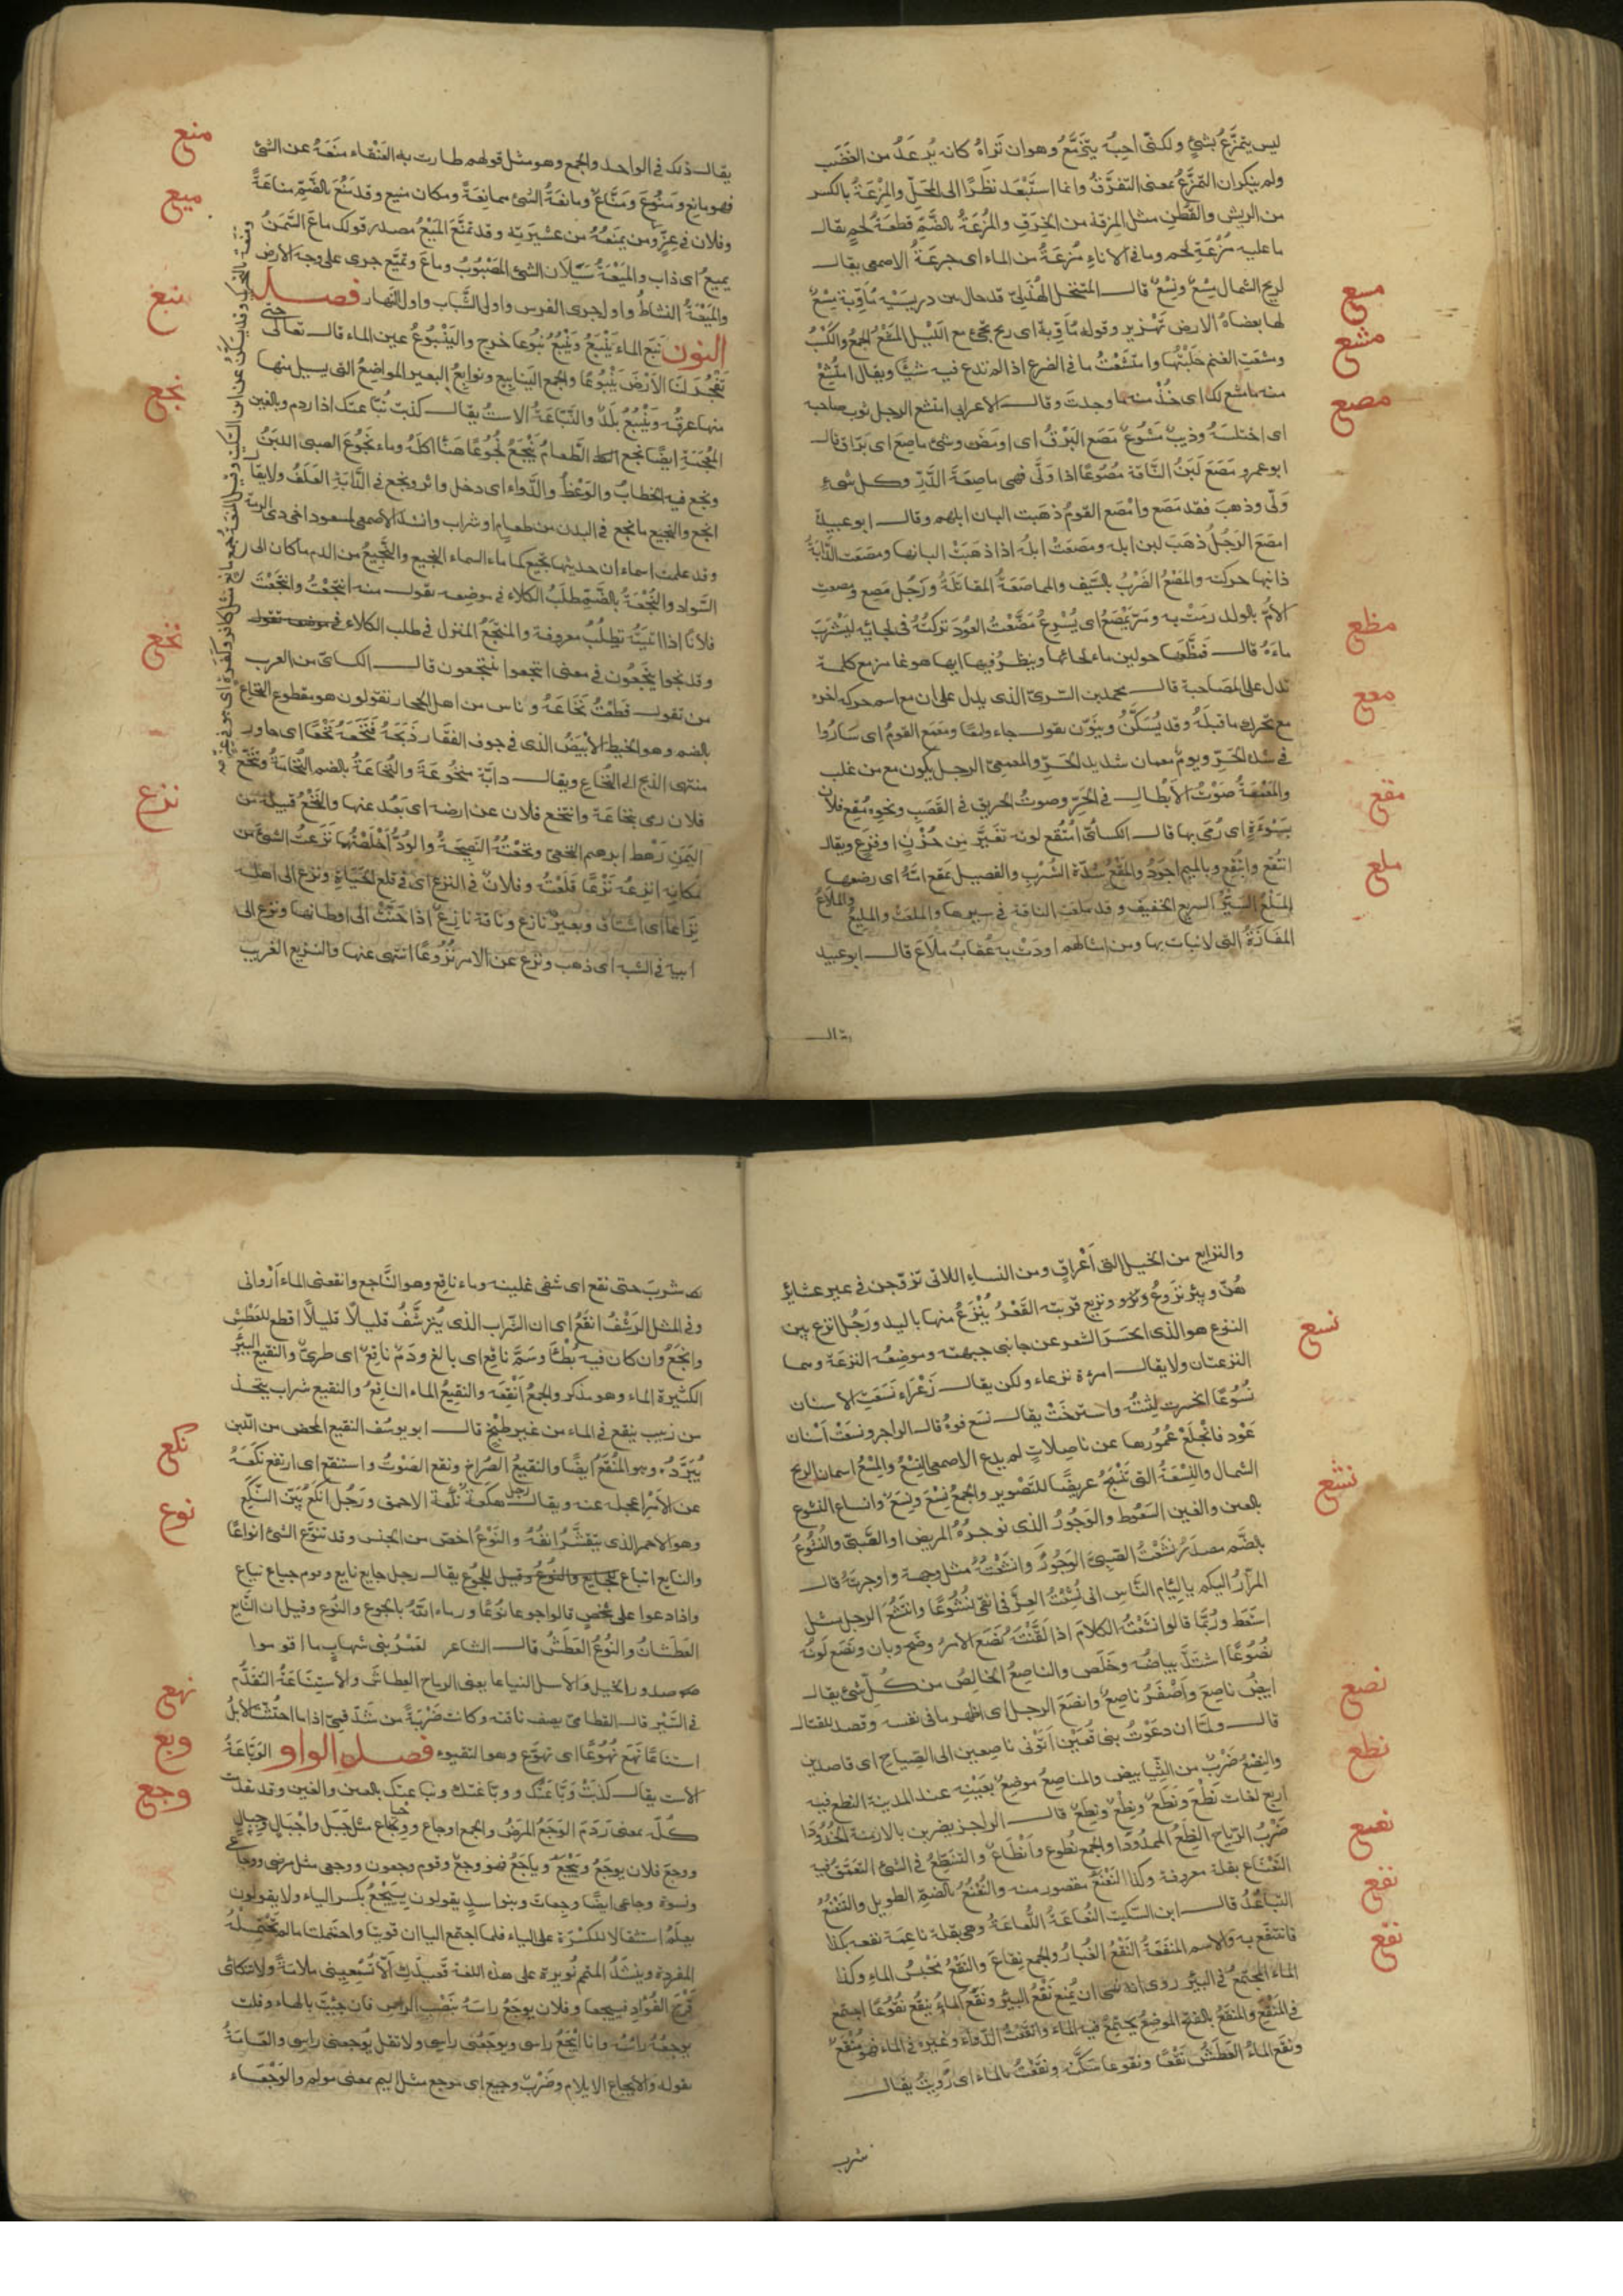 ليس يتمزع بشئ ولكنى احبه يتخرع وهو ان تراه كانه يرعد من الغضب
ولم ينكر ان التمزع بمعنى التفرق وانما استبعد نظرا الى المحل والمزعة بالكسر
من الريش والقطن مثل المزقة من الخرق والمزعة بالضم قطعة لحم يقال
ما عليه مزعة لحم وما فى الاناء مزعة من الماء اى جرعة الاصمعى يقال
مسع
لريح الشمال مسع ونسع قال المتنخل الهذلى قد حال بين دريسيه مأوبة نسع
لها بعضاه الارض تهزيز وقوله مأوبة اى ريح تجئ مع الليل المشع الجمع والكسب
مشع
ومشعت الغنم حلبتها وامتشعت ما فى الضرع اذا لم تدع فيه شيئا ويقال امتشع
منه ما مشع لك اى خذ منه ما وجدت وقال الاعرابى امتشع الرجل ثوب صاحبه
مصع
اى اختلسه وذيب مشوع مصع البرق اى اومض وشئ ماصع اى براق قال
ابو عمرو مصع لبن الناقة مصوعا اذا ولى فهى ماصعة الدر وكل شئ
ولى وذهب فقد مصع وامصع القوم ذهبت البان ابلهم وقال ابو عبيدة
امصع الرجل ذهب لبن ابله ومصعت ابله اذا ذهبت البانها ومصعت الدابة
ذانبها حركته والمصع الضرب بالسيف والمماصعة المقاتلة ورجل مصع ومصعت
الام بالولد رمت به ومر يمصع اى يسرع مضعت العود تركته فى لحائه ليشرب
مظع
ماءه قال فمظعها حولين ماء لحائها وينظر فيها ايها هو غامز مع كلمة
تدل على المصاحبة قال محمد بن السرى الذى يدل على ان مع اسم حركة اخره
معع
مع تحرك ما قبله وقد يسكن وينون يقول جاء ولمعا ومعمع القوم اى ساروا
فى شدة الحر ويوم معمعان شديد الحر والمعمعى الرجل يكون مع من غلب
والمعمعة صوت الابطال فى الحر وصوت الحريق فى القصب ونحوه مقع فلان
مقع
بسوءة اى رمى بها قال الكسائى امتقع لونه تغير من حزن او فزع ويقال
انتقع وابتقع وبالميم اجود والمقع شدة الشرب والفصيل يمقع امه اى رضعها
ملع
الملع السير السريع الخفيف وقد ملعت الناقة فى سيرها واملعت والمليع والملاع
المفازة التى لا نبات بها ومن امثالهم اودت به عقاب ملاع قال ابو عبيد
يقال
يقال ذلك فى الواحد والجمع وهو مثل قولهم طارت به العنقاء منعته عن الشئ
منع
فهو مانع ومنوع ومناع ومانعة الشئ ممانعة ومكان منيع وقد منع بالضم مناعة
ميع
وفلان فى عز ومن يمنعه من عشيرته وقد تمنع الميع مصدر قولك ماع السمن
يميع اى ذاب والميعة سيلان الشئ المصبوب وماع وتميع جرى على وجه الارض
والميعة النشاط واول جرى الفرس واول الشباب واول النهار فصل
نبع
النون نبع الماء ينبع وينبع نبوعا خرج والينبوع عين الماء قال تعالى حتى
تفجر لنا الارض ينبوعا والجمع الينابيع ونوابع البعير المواضع التى يسيل منها
منها عرقه وينبع بلد والنباعة الاست يقال كذبت نباعتك اذا ردم وبالغين
نجع
المعجمة ايضا نجع الطعام ينجع نجوعا هنأ اكله وماء نجوع الصبى اللبن
ونجع فيه الخطاب والوعظ والدواء اى دخل واثر ونجع فى الدابة العلف ولا يقال
انجع والنجيع ما نجع فى البدن من طعام او شراب وانشد الاصمعى لمسعود اخى ذى الرمة
وقد علمت اسماء ان حديثها نجيع كما ماء السماء النجيع والنجيع من الدم ما كان الى
السواد والنجعة بالضم طلب الكلاء فى موضعه تقول منه انتجعت وانتجعت
فلانا اذا اتيته تطلب معروفة والمنتجع المنزل فى طلب الكلاء
وقد نجوا ينجعون فى معنى انتجعوا ينتجعون قال الكسائى من العرب
نخع
من تقول قطعت نخاعه وناس من اهل الحجاز يقولون هو مقطوع النخاع
بالضم وهو الخيط الابيض الذى فى جوف الفقار ذبحه فنخعه نخعا اى جاوز
منتهى الذبح الى النخاع ويقال دابة منخوعة والنخاعة بالضم النخامة وتنخع
فلان رمى بنخاعة وانتخع فلان عن ارضه اى بعد عنها والنخع قبيلة من
نزع
اليمن رهط ابرهيم النخعى ونخعته النصيحة والود اخلصتهما نزعت الشئ من
مكانه انزعه نزعا قلعته وفلان فى النزع اى فى قلع الحياة ونزع الى اهله
نزاعا اى اشتاق وبعير نازع وناقة نازع اذا حنت الى اوطانها ونزع الى
ابيه فى الشبه اى ذهب ونزع عن الامر نزوعا انتهى عنها والنزيع الغريب
والنزايع من الخيل التى اعراق ومن النساء اللاتى تزوجن فى غير عشائر
هن وبئر نزوع ونزيع قربت القعر ينزع منها باليد ورجل انزع بين
نسع
النزع هو الذى انحسر الشعر عن جانبى جبهته وموضعه النزعة وهما
النزعتان ولا يقال امرءة نزعاء ولكن يقال زعراء نسعت الاسنان
نسوعا انحسرت لثته واسترخت يقال نسع فوه قال الراجز ونسعت اسنان
عود فانجلع عمورها عن ناصلات لم يدع الاصمعى النسع والمسع اسمان لريح
الشمال والنسعة التى تنسج عريضا للتصدير والجمع نسع ونسع وانساع النشوع
نشع
بالعين والغين السعوط والوجور الذى توجره المريض او الصبى والنشوع
بالضم مصدر نشعت الصبى الوجور وانشعته مثل وجرته واوجرته قال
المرار اليكم يا لئام الناس انى نشعت العز فى انفى نشوعا وانتشع الرجل مثل
استعط وربما قالوا نشعته الكلام اذا لقنته نصع الامر وضح وبان ونصع لونه
نصع
نصوعا اشتد بياضه وخلص والناصع الخالص من كل شئ يقال
ابيض ناصع واصفر ناصع وانصع الرجل اى اظهر ما فى نفسه وقصد للقتال
قال ولما ان دعوت بنى قعين اتونى ناصعين الى الصياح اى قاصدين
نطع
والنصع ضرب من الثياب بيض والمناصع موضع بعينه عند المدينة النطع فيه
اربع لغات نطع ونطع ونطع ونطع قال الراجز يضربن بالازمة الخدودا
نعنع
ضرب الرياح النطع الممدودا والجمع نطوع وانطاع والتنطع فى الشئ التعمق فيه
النعناع بقلة معروفة وكذا النعنع مقصور منه والنعنع بالضم الطويل والتنعنع
نفع
التباعد قال ابن السكيت النعاعة اللعاعة وهى بقلة ناعمة نفعه بكذا
نقع
فانتفع به والاسم المنفعة النقع الغبار والجمع نقاع والنقع محبس الماء وكذا
الماء المجتمع فى البئر روى انه نهى ان يمنع نقع البئر ونقع الماء ينقع نقوعا اجتمع
فى المنقع والمنقع بالفتح الموضع يجتمع فيه الماء وانقعت الدواء وغيره فى الماء فهو منقع
ونقع الماء العطش نقعا ونقوعا سكنه ونقعت بالماء اى رويت يقال
شرب
شرب حتى نقع اى شفى غليله وماء ناقع وهو الناجع وانقعنى الماء اروانى
وفى المثل الرشف انقع اى ان الشراب الذى يترشف قليلا قليلا اقطع للعطش
وانجع وان كان فيه بطأ وسم ناقع اى بالغ ودم ناقع اى طرى والنقيع البئر
الكثيرة الماء وهو مذكر والجمع انقعة والنقيع الماء الناقع والنقيع شراب يتخذ
من زبيب ينقع فى الماء من غير طبخ قال ابو يوسف النقيع المحض من اللبن
نكع
يبرد وهو المنقع ايضا والنقيع الصراخ ونقع الصوت واستنقع اى ارتفع نكعه
عن الامر اعجله عنه ويقال رجل هكعة نكعة الاحمق ورجل انكع بين النكع
نوع
وهو الاحمر الذى يتقشر انفه والنوع اخص من الجنس وقد تنوع الشئ انواعا
والنايع اتباع للجايع والنوع وقيل للجوع يقال رجل جايع نايع وقوم جياع نياع
واذا دعوا على شخص قالوا جوعا نوعا ورماه الله بالجوع والنوع وقيل ان النايع
العطشان والنوع العطش قال الشاعر لعمر بنى شهاب ما اقاموا
صدور الخيل والاسل النياعا يعنى الرماح العطاش والاستناعة التقدم
نهع
فى السير قال القطامى يصف ناقته وكانت ضربة من شدقمى اذا ما احتثت الابل
وبع
استناعا نهع نهوعا اى تهوع وهو التقيوء فصل الواو الوباعة
وجع
الاست يقال كذبت وباعتك ووباغتك ونباعتك بالعين والغين وقد نفلت
كله بمعنى ردم الوجع المرض والجمع اوجاع ووجاع مثل جبل واجبال وجبال
ووجع فلان يوجع وييجع وياجع فهو وجع وقوم وجعون ووجعى مثل مرضى ووجاعى
ونسوة وجاعى ايضا ووجعات وبنو اسد يقولون ييجع بكسر الياء ولا يقولون
يعلم استثقالا للكسرة على الياء فلما اجتمع الياان قويتا واحتملت ما لم تحتمله
المفردة وينشد لمتمم بن نويرة على هذه اللغة قعيدك الا تسمعينى ملامة ولا تنكائى
قرح الفؤاد فييجعا وفلان يوجع راسه بنصب الراس فان جئت بالهاء وقلت
يوجعه راسه وانا ايجع راسى ويوجعنى راسى ولا تقل يوجعنى راسى والعامة
تقوله والايجاع الايلام وضرب وجيع اى موجع مثل اليم بمعنى مولم والوجعاء